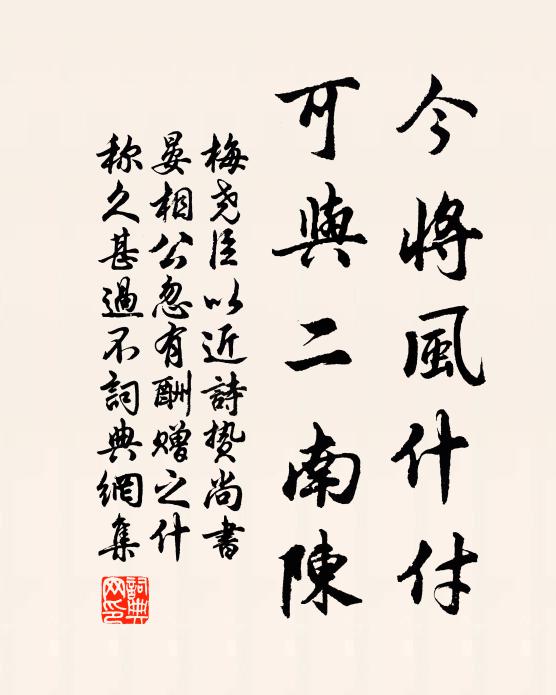 今將風什付
可與二南陳
梅尧臣以近詩贽尚書
晏相公忽有酬赠之什
称久甚過不詞典網集
詞典
网印